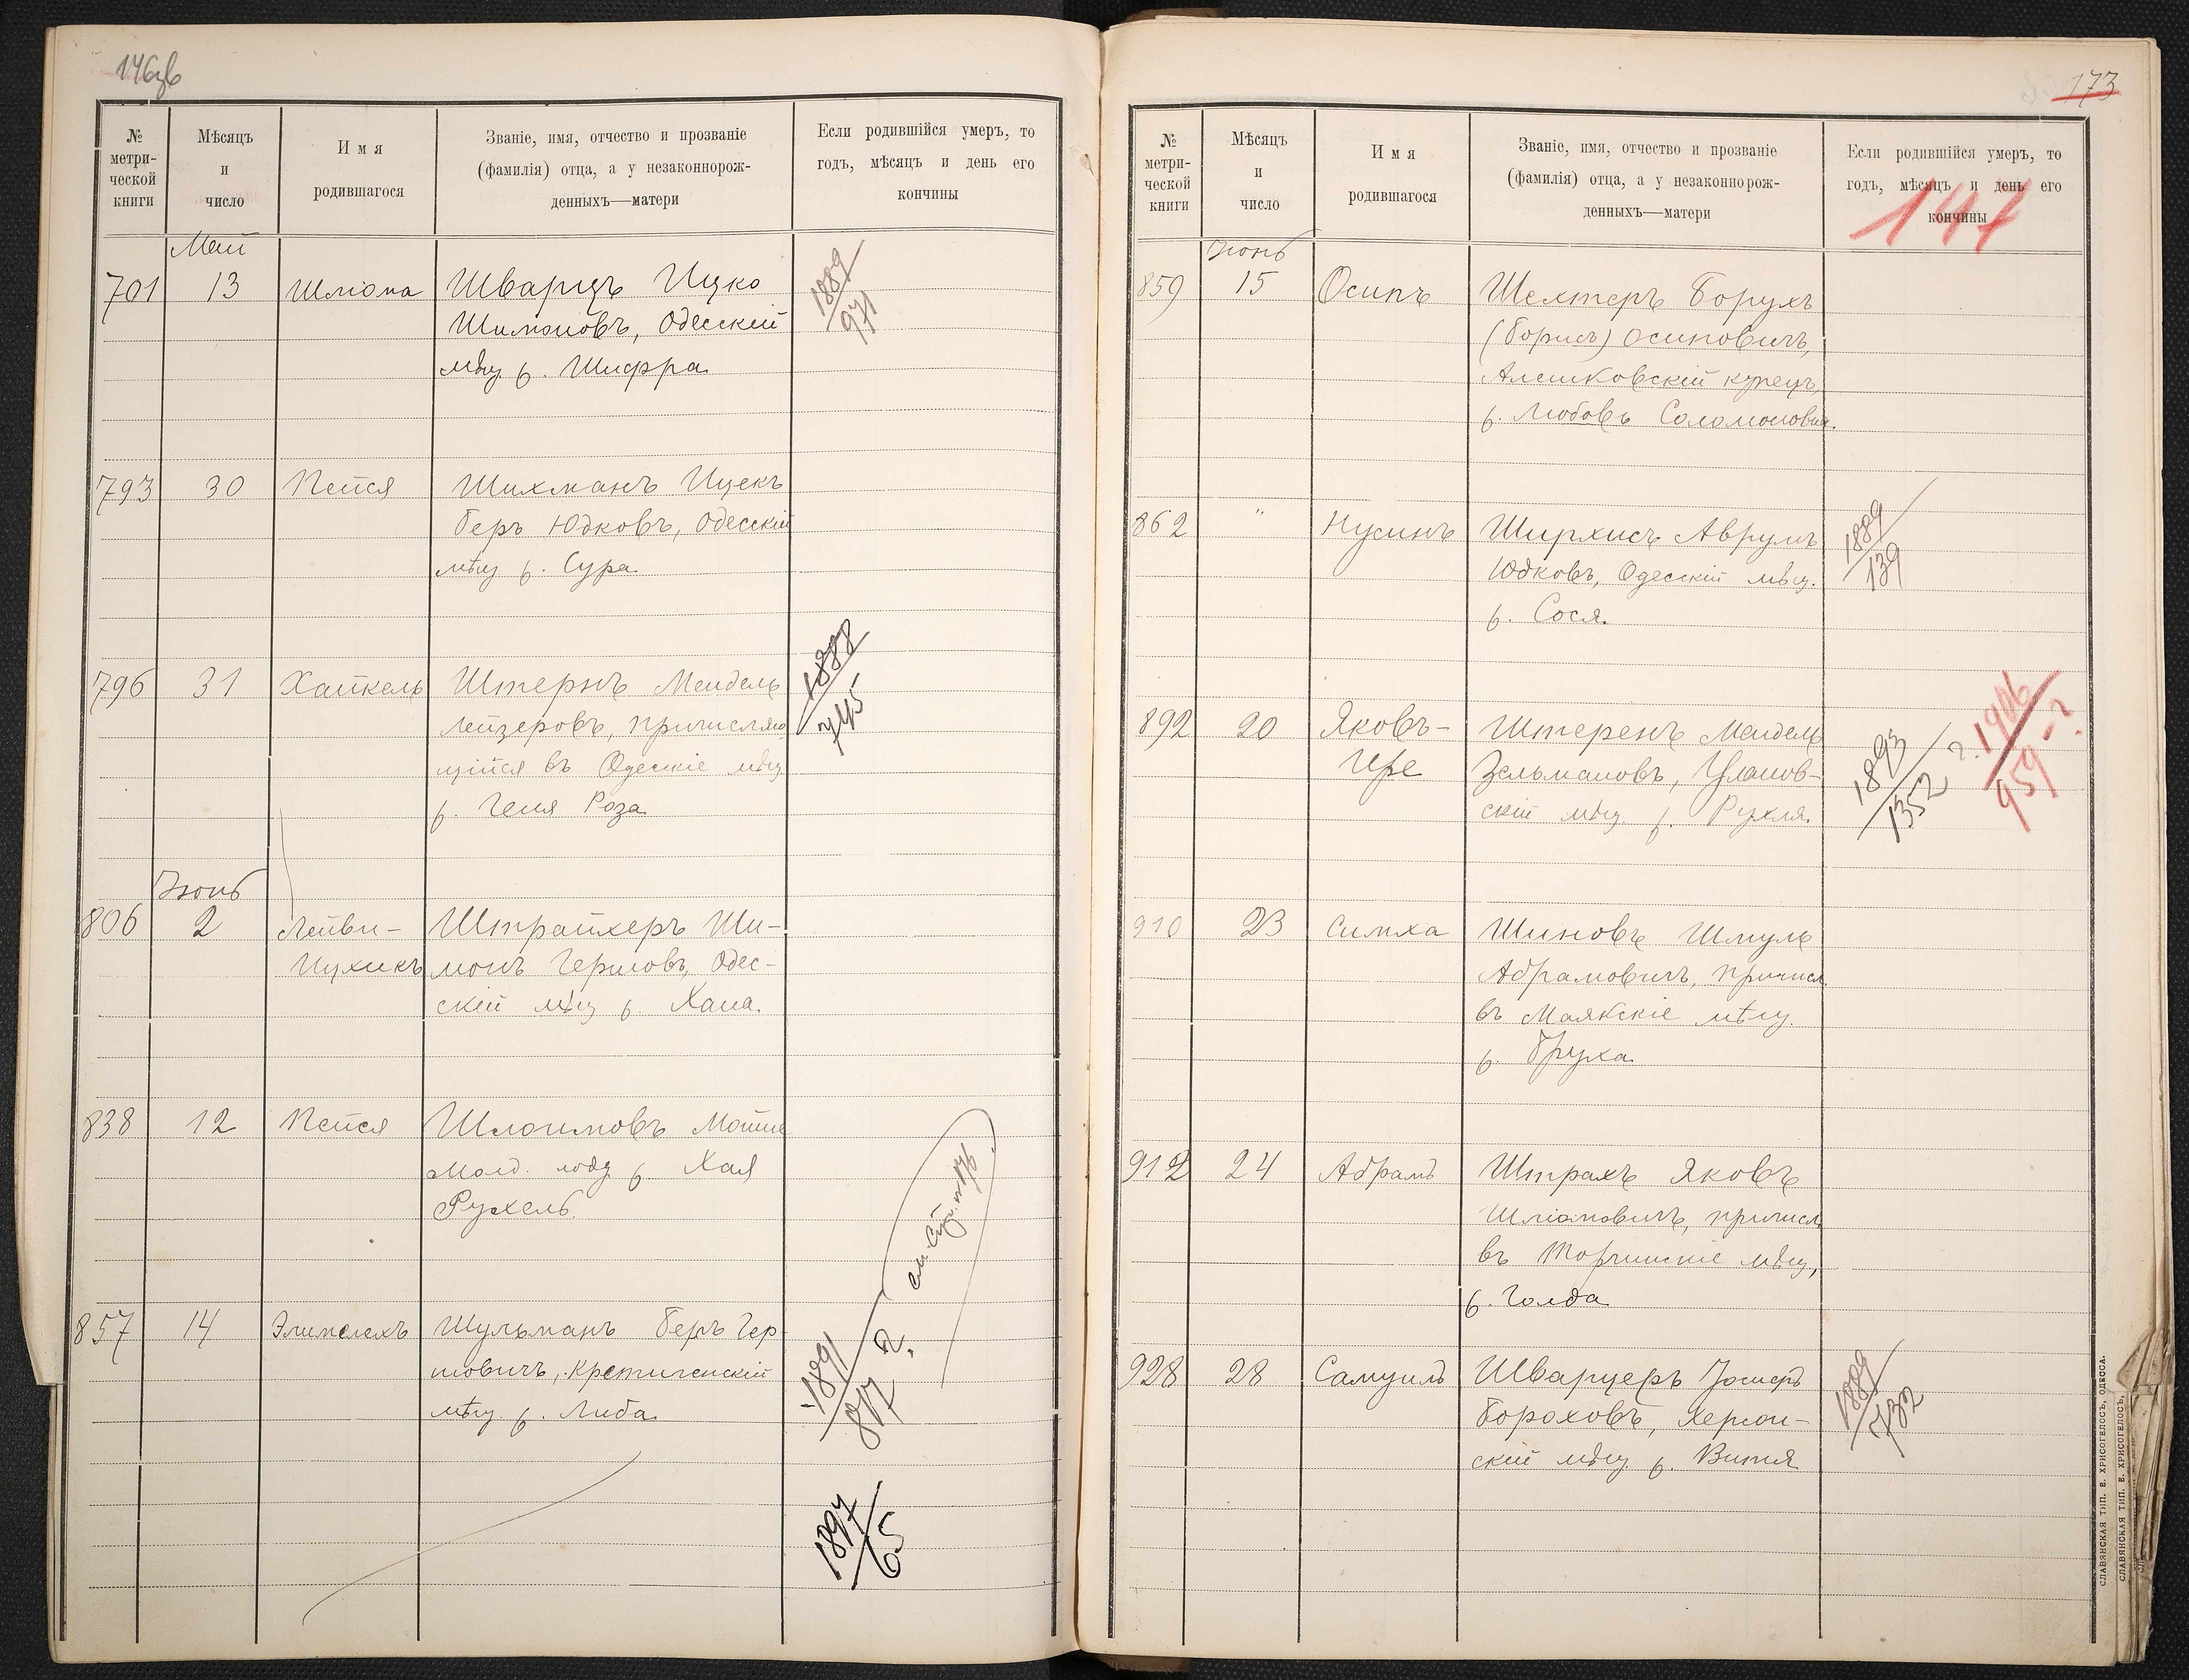 146об
№ метрической книги
Мѣсяцъ и число
Имя родившагося
Званіе, имя, отчество и прозваніе
(фамилія) отца, а у незаконнорож-
денныхъ—матери
Если родившійся умеръ, то
годъ, мѣсяцъ и день его
кончины
Май
701 13 Шліома Шварцъ Ицко 1889/971
Шимоновъ, Одесскій
мѣщ. ж. Шифра
793 30 Пейся Шихманъ Ицекъ
Беръ Юдковъ, Одесскій
мѣщ ж. Сура
796 31 Хайкель Штернъ Мендель 1888
Лейзеровъ, причисляю
щійся въ Одескіе мѣщ
ж. Геня Роза
Іюнь
806 2 Лейви- Штрайхеръ Ши-
Ицхикъ монъ Гершовъ, Одес-
скій мѣщ ж. Хана.
838 12 Пейся Шлоимовъ Мотие
Молд. подд ж. Хая
Рухель.
857 14 Элимелехъ Шульманъ Беръ Гер- 1891/817 ?
шовичъ, Кременчскій
мѣщ. ж. Либа.
см. стр. 176
1897/65
173
№ метрической книги
Мѣсяцъ и число
Имя родившагося
Званіе, имя, отчество и прозваніе
(фамилія) отца, а у незаконнорож-
денныхъ—матери
Если родившійся умеръ, то
годъ, мѣсяцъ и день его
кончины
147
Іюнь
859 15 Осипъ Шехтеръ Борухъ
(Борисъ) Осиповичъ,
Алешковскій купецъ,
ж. Любовь Соломоновна.
862 " Нусинъ Ширхисъ Аврумъ 1889/139
Юдковъ, Одесскій мѣщ.
ж. Сося.
892 20 Яковъ- Штеренъ Мендель 1893/1352 ? 1906/959-?
Ире Зельмановъ, Улановъ-
скій мѣщ. ж. Рухля.
910 23 Симха Шиновъ Шмуль
Абрамовичъ, причисл.
въ Маякскіе мѣщ.
ж. Бруха.
912 24 Абрамъ Штрахъ Яковъ
Шліомовичъ, причисл.
въ Торчинскіе мѣщ,
ж. Голда
928 28 Самуилъ Шварцеръ Іосифъ 1889/732
Бороховъ, Херсон-
скій мѣщ. ж. Витя
СЛАВЯНСКАЯ ТИП. Е. ХРИСОГЕЛОСЪ, ОДЕССА.
СЛАВЯНСКАЯ ТИП. Е. ХРИСОГЕЛОСЪ,